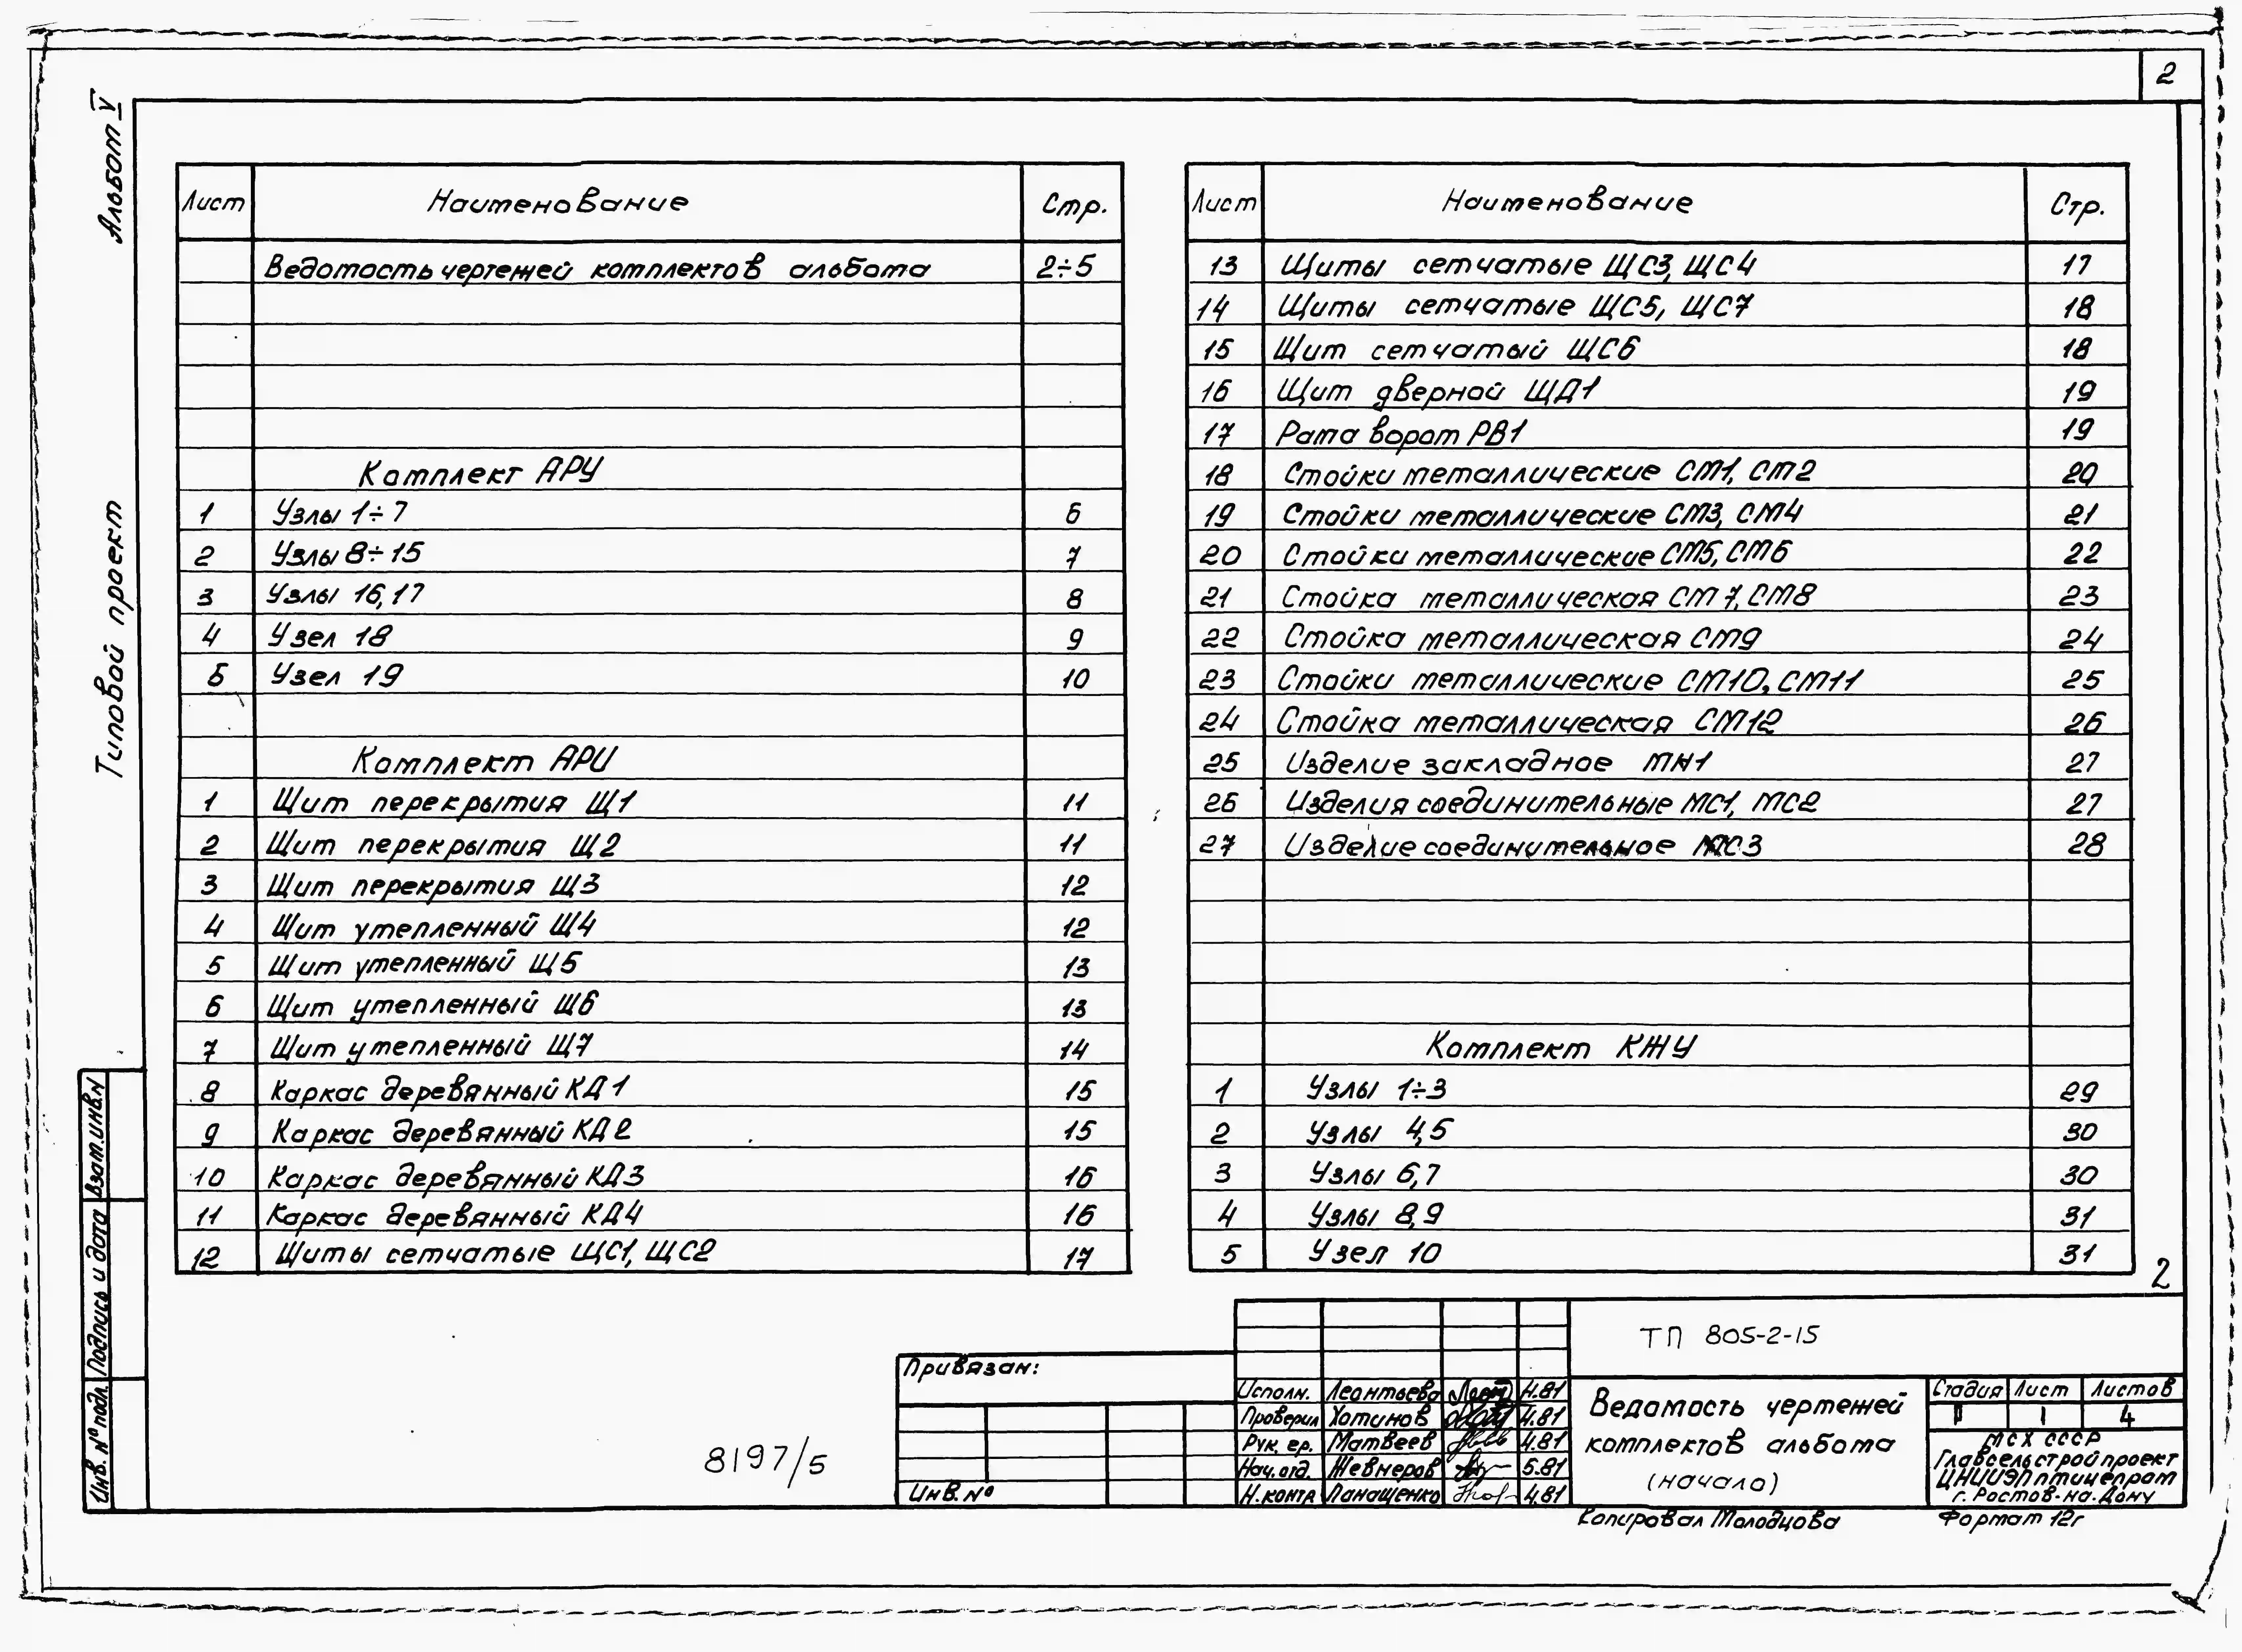 2
Альбом V
Типовой проект
Лист Наименование Стр.
Ведомость чертежей комплектов альбома 2÷5
Комплект АРУ
1 Узлы 1÷7 6
2 Узлы 8÷15 7
3 Узлы 16,17 8
4 Узел 18 9
5 Узел 19 10
Комплект АРИ
1 Щит перекрытия Щ1 11
2 Щит перекрытия Щ2 11
3 Щит перекрытия Щ3 12
4 Щит утепленный Щ4 12
5 Щит утепленный Щ5 13
6 Щит утепленный Щ6 13
7 Щит утепленный Щ7 14
8 Каркас деревянный КД1 15
9 Каркас деревянный КД2 15
10 Каркас деревянный КД3 16
11 Каркас деревянный КД4 16
12 Щиты сетчатые ЩС1, ЩС2 17
Лист Наименование Стр.
13 Щиты сетчатые ЩС3, ЩС4 17
14 Щиты сетчатые ЩС5, ЩС7 18
15 Щит сетчатый ЩС6 18
16 Щит дверной ЩД1 19
17 Рама ворот РВ1 19
18 Стойки металлические СМ1, СМ2 20
19 Стойки металлические СМ3, СМ4 21
20 Стойки металлические СМ5, СМ6 22
21 Стойка металлическая СМ7, СМ8 23
22 Стойка металлическая СМ9 24
23 Стойки металлические СМ10, СМ11 25
24 Стойка металлическая СМ12 26
25 Изделие закладное МН1 27
26 Изделия соединительные МС1, МС2 27
27 Изделие соединительное МС3 28
Комплект КЖУ
1 Узлы 1÷3 29
2 Узлы 4,5 30
3 Узлы 6,7 30
4 Узлы 8,9 31
5 Узел 10 31
2
Взам.инв.N
Подпись и дата
Инв. N° подл.
8197/5
Привязан:
Инв. N°
Исполн. Леонтьева 4.81
Проверил Хотинов 4.81
Рук. гр. Матвеев 4.81
Нач. отд. Жевнеров 5.81
Н. контр Панащенко 4.81
ТП 805-2-15
Ведомость чертежей
комплектов альбома
(начало)
Стадия Лист Листов
Р 1 4
МСХ СССР
Главсельстройпроект
ЦНИИЭПптицепром
г. Ростов-на-Дону
Копировал Молодцова
Формат 12г